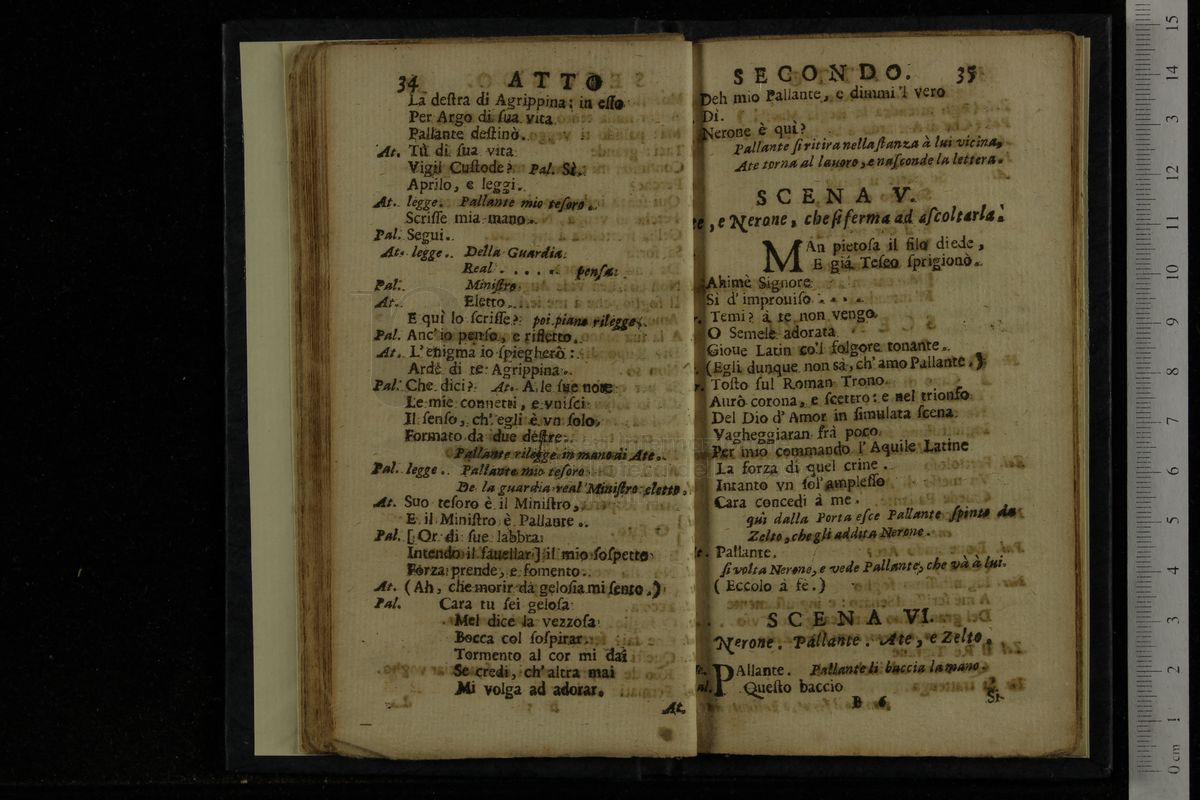 34 ATTO
La deſtra di Agrippina; in eſſo
Per Argo di ſua vita
Pallante deſtinò.
At. Tù di ſua vita
Vigil Cuſtode? Pal. Sì.
Aprilo, e leggi.
At. legge. Pallante mio teſoro.
Scriſſe mia mano.
Pal. Segui.
At. legge. Della Guardia
Real . . . . . penſa:
Pal. Miniſtro
At. Eletto.
E quì lo ſcriſſe? poi piano rilegge.
Pal. Anc'io penſo, e rifletto.
At. L'enigma io ſpiegherò:
Arde di te Agrippina.
Pal. Che dici? At. A le ſue note
Le mie connetti, e vniſci
Il ſenſo, ch'egli è vn ſolo,
Formato da due deſtre.
Pallante rilegge in mano di Ate.
Pal. legge. Pallante mio teſoro
De la guardia real Miniſtro eletto.
At. Suo teſoro è il Miniſtro,
E il Miniſtro è Pallante.
Pal. [Or di ſue labbra
Intendo il fauellar] il mio ſoſpetto
Forza prende, e fomento.
At. (Ah, che morir da geloſia mi ſento.)
Pal. Cara tu ſei geloſa
Mel dice la vezzoſa
Bocca col ſoſpirar.
Tormento al cor mi dai
Se credi, ch'altra mai
Mi volga ad adorar.
At.
SECONDO. 35
Deh mio Pallante, e dimmi 'l vero
Dì.
Nerone è quì?
Pallante ſi ritira nella ſtanza à lui vicina,
Ate torna al lauoro, e naſconde la lettera.
SCENA V.
e Nerone, che ſi ferma ad aſcoltarla.
MAn pietoſa il filo diede,
E giá Teſeo ſprigionò.
Ahimè Signore
Sì d'improuiſo . . . .
Temi? à te non vengo
O Semele adorata
Gioue Latin co'l folgore tonante.
(Egli dunque non sà, ch'amo Pallante.)
Toſto ſul Roman Trono
Aurò corona, e ſcettro: e nel trionfo
Del Dio d'Amor in ſimulata ſcena
Vagheggiaran frà poco
Per mio commando l'Aquile Latine
La forza di quel crine.
Intanto vn ſol'ampleſſo
Cara concedi à me.
quì dalla Porta eſce Pallante ſpinto da
Zelto, che gli addita Nerone.
Pallante.
ſi volta Nerone, e vede Pallante, che và à lui.
(Eccolo à fè.)
SCENA VI.
Nerone. Pallante. Ate, e Zelto.
PAllante. Pallante li baccia la mano.
Queſto baccio
B 6 Si